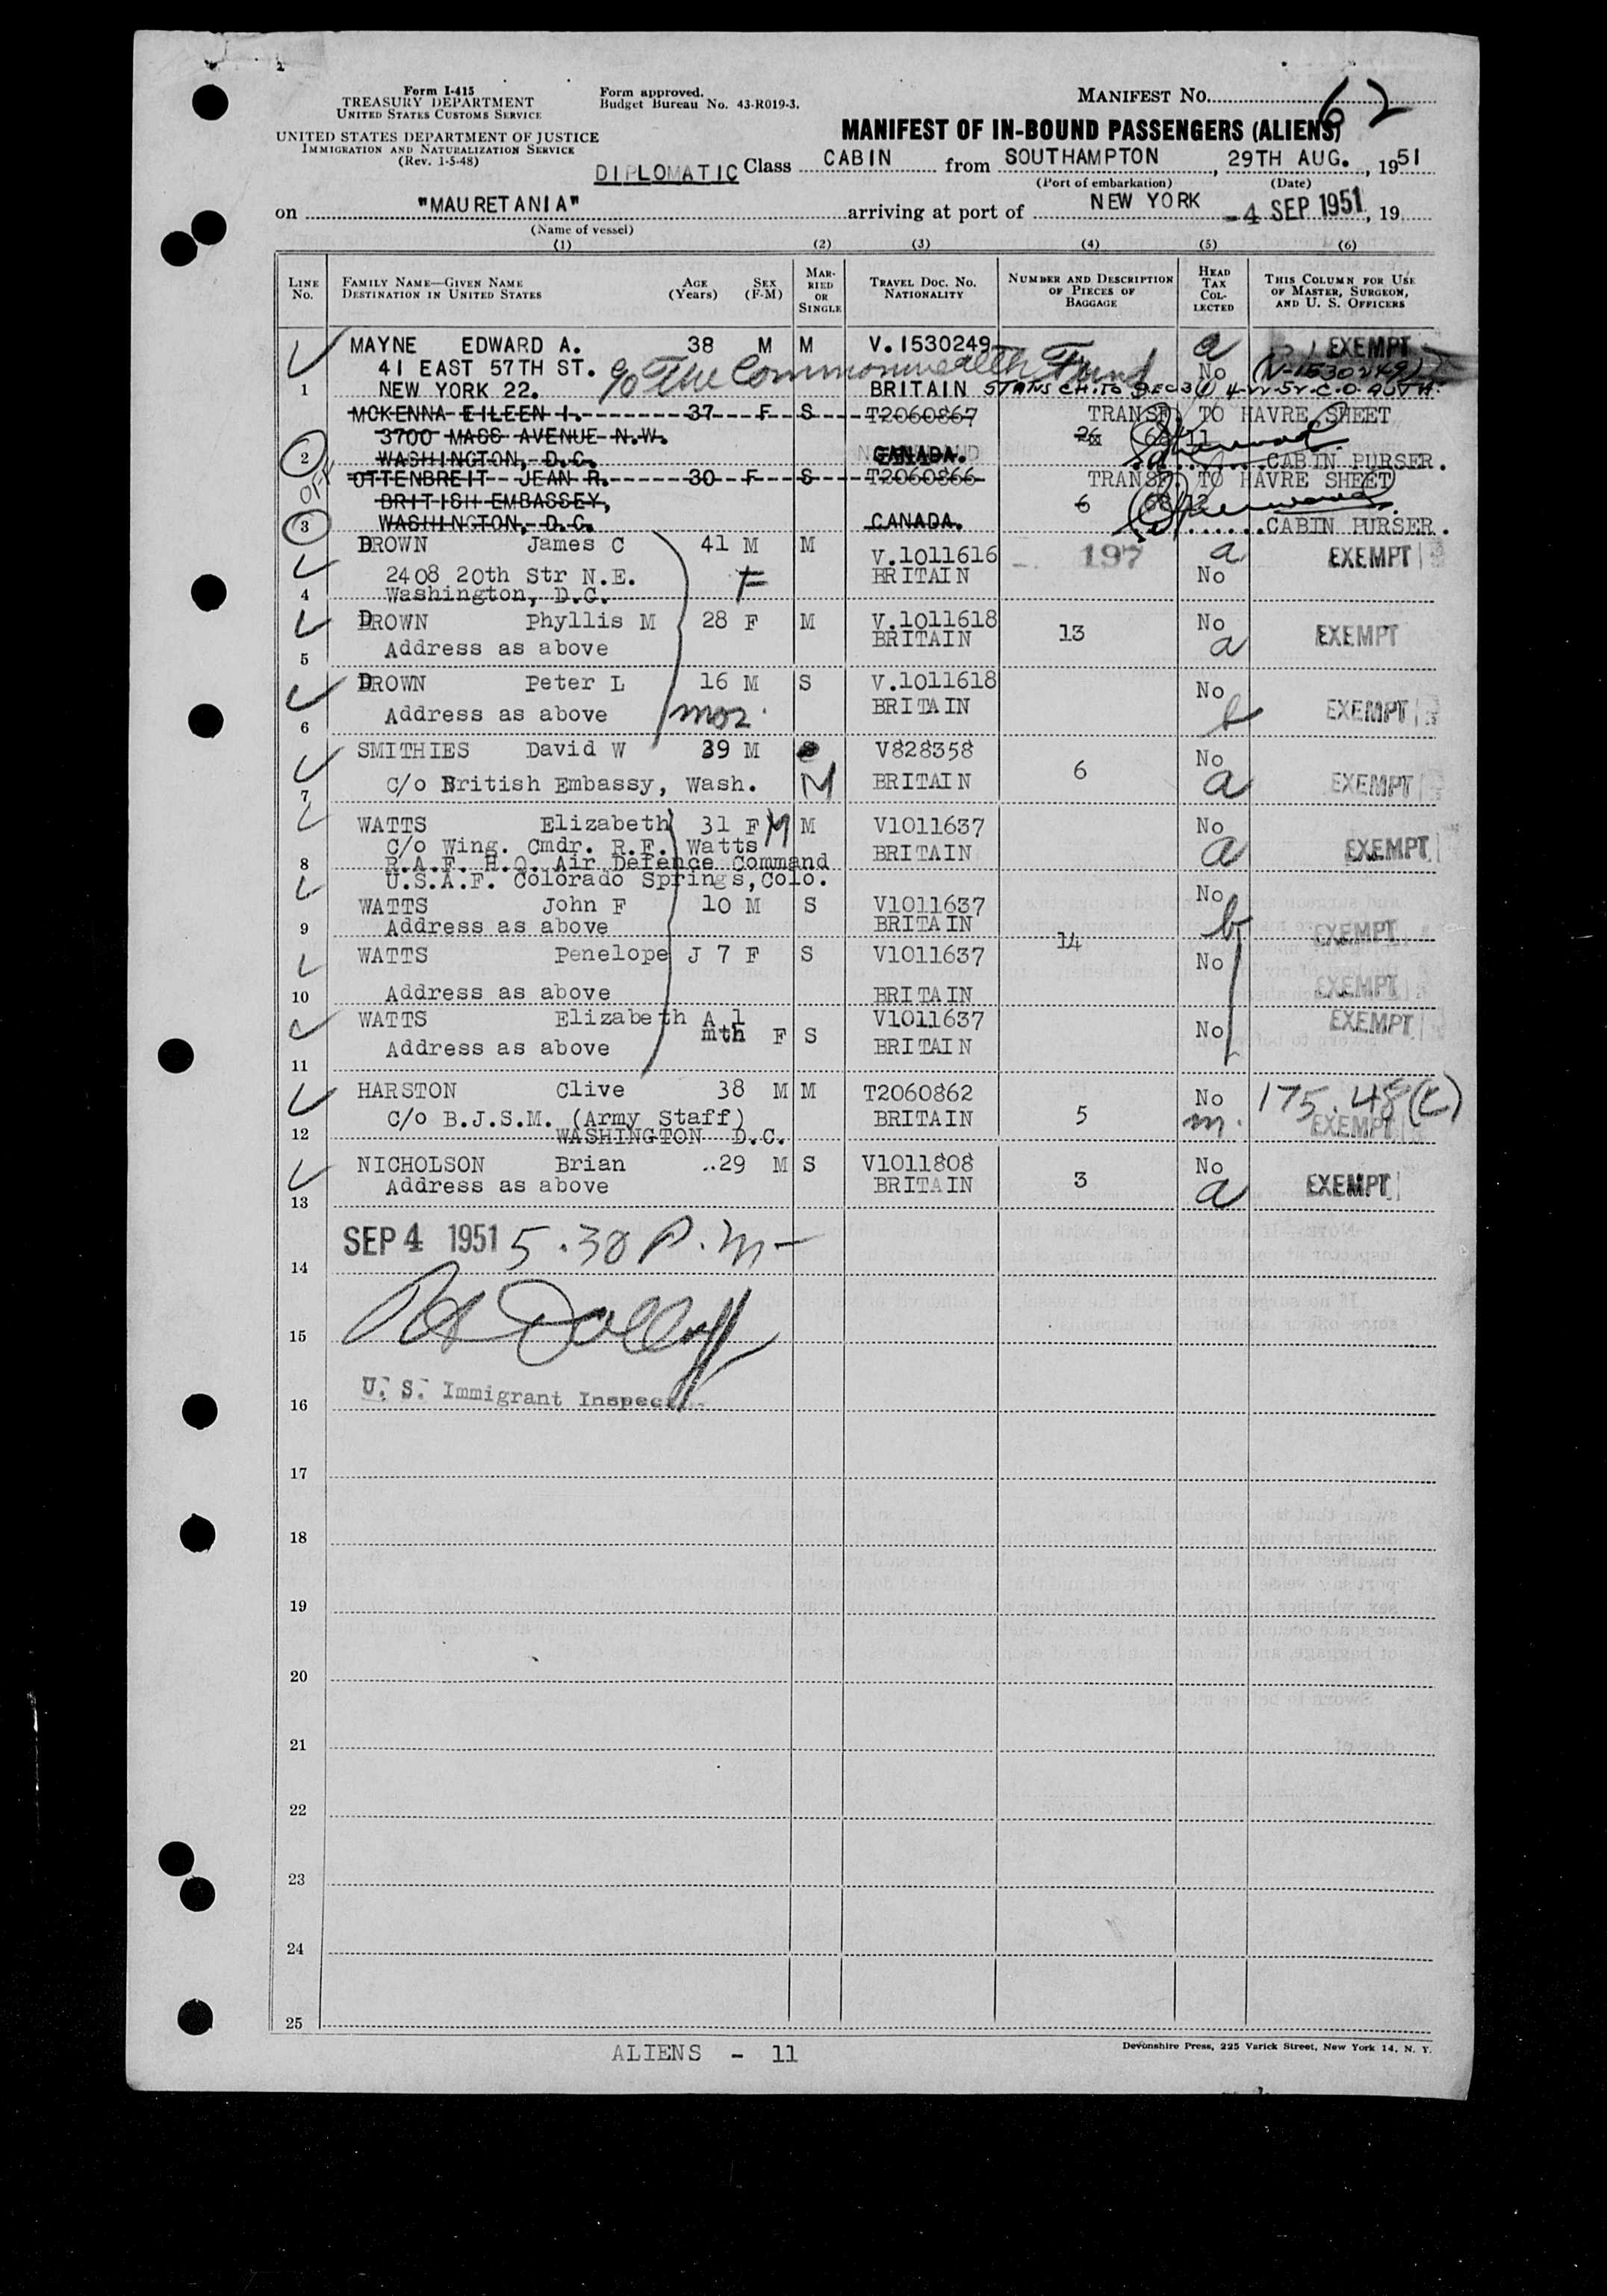 Form I-415
TREASURY DEPARTMENT
UNITED STATES CUSTOMS SERVICE
UNITED STATES DEPARTMENT OF JUSTICE
IMMIGRATION AND NATURALIZATION SERVICE
(Rev. 1-5-48)
Form approved.
Budget Bureau No. 43-R019-3.
MANIFEST NO. 62
MANIFEST OF IN-BOUND PASSENGERS (ALIENS)
DIPLOMATIC Class CABIN from SOUTHAMPTON, 29TH AUG., 1951
(Port of embarkation) (Date)
on "MAURETANIA" arriving at port of NEW YORK -4 SEP 1951, 19
(Name of vessel)
(1) (2) (3) (4) (5) (6)
LINE NO. FAMILY NAME—GIVEN NAME DESTINATION IN UNITED STATES AGE (Years) SEX (F-M) MARRIED OR SINGLE TRAVEL DOC. NO. NATIONALITY NUMBER AND DESCRIPTION OF PIECES OF BAGGAGE HEAD TAX COLLECTED THIS COLUMN FOR USE OF MASTER, SURGEON, AND U. S. OFFICERS
MAYNE EDWARD A. 38 M M V.1530249 a EXEMPT
41 EAST 57TH ST. c/o The Commonwealth Fund No (V-1530249)
1 NEW YORK 22. BRITAIN STATUS CH. TO SEC 3(1) 4-22-52 C.O. AUTH.
MCKENNA EILEEN I. 37 F S T2060867 TRANSF. TO HAVRE SHEET
3700 MASS AVENUE N.W. 26 68/11
2 WASHINGTON, D.C. CANADA. CABIN PURSER.
OTTENBREIT JEAN R. 30 F S T2060866 TRANSF. TO HAVRE SHEET
off BRITISH EMBASSEY, 6 68/12
3 WASHINGTON, D.C. CANADA. CABIN PURSER.
DROWN James C 41 M M V.1011616 197 a EXEMPT
2408 20th Str N.E. F BRITAIN No
4 Washington, D.C.
DROWN Phyllis M 28 F M V.1011618 13 No EXEMPT
5 Address as above BRITAIN a
DROWN Peter L 16 M S V.1011618 No
6 Address as above mos. BRITAIN b EXEMPT
SMITHIES David W 39 M V828358 6 No
7 C/o British Embassy, Wash. M BRITAIN a EXEMPT
WATTS Elizabeth 31 F M M V1011637 No
C/o Wing. Cmdr. R.F. Watts BRITAIN a EXEMPT
8 R.A.F. H.Q. Air Defence Command
U.S.A.F. Colorado Springs, Colo.
WATTS John F 10 M S V1011637 No
9 Address as above BRITAIN 14 b EXEMPT
WATTS Penelope J 7 F S V1011637 No
10 Address as above BRITAIN EXEMPT
WATTS Elizabeth A 1 V1011637 EXEMPT
mth F S No
11 Address as above BRITAIN
HARSTON Clive 38 M M T2060862 No 175.48(c)
C/o B.J.S.M. (Army Staff) BRITAIN 5 m. EXEMPT
12 WASHINGTON D.C.
NICHOLSON Brian ..29 M S V1011808 3 No
13 Address as above BRITAIN a EXEMPT
SEP 4 1951 5.30 P.m-
14
15
U. S. Immigrant Inspector
16
17
18
19
20
21
22
23
24
25
ALIENS - 11
Devonshire Press, 225 Varick Street, New York 14, N. Y.